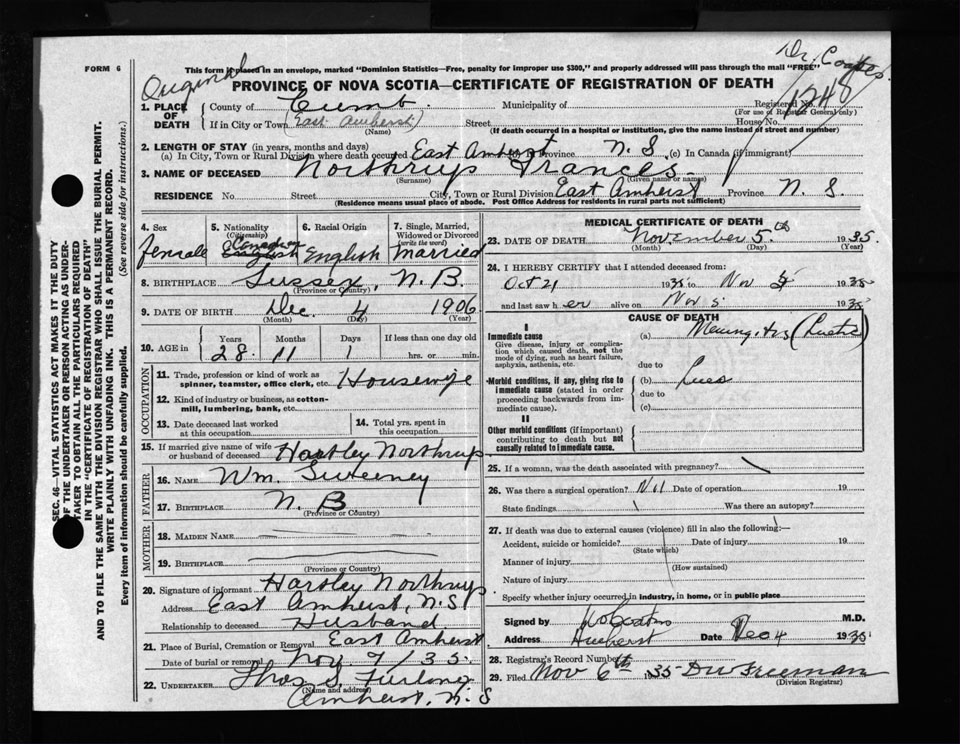 FORM 6
Original
Dr. Coates.
This form if placed in an envelope, marked "Dominion Statistics—Free, penalty for improper use $300," and properly addressed will pass through the mail "FREE"
PROVINCE OF NOVA SCOTIA—CERTIFICATE OF REGISTRATION OF DEATH
1. PLACE OF DEATH County of Cumb. Municipality of Registered No.
(For use of Registrar General only)
If in City or Town (East Amherst) Street House No.
(Name) (If death occurred in a hospital or institution, give the name instead of street and number)
2. LENGTH OF STAY (in years, months and days)
(a) In City, Town or Rural Division where death occurred East Amherst (b) in Province N. S. (c) In Canada (if immigrant)
3. NAME OF DECEASED Northrup Frances
(Surname) (Given name or names)
RESIDENCE No Street City, Town or Rural Division East Amherst Province N. S.
(Residence means usual place of abode. Post Office Address for residents in rural parts not sufficient)
4. Sex female
5. Nationality (Citizenship) Canadian English
6. Racial Origin English
7. Single, Married, Widowed or Divorced (write the word) Married
8. BIRTHPLACE Sussex, N.B.
(Province or Country)
9. DATE OF BIRTH Dec. 4 1906
(Month) (Day) (Year)
10. AGE in Years Months Days If less than one day old
28 11 1 hrs. or min.
OCCUPATION
11. Trade, profession or kind of work as spinner, teamster, office clerk, etc. Housewife
12. Kind of industry or business, as cotton-mill, lumbering, bank, etc.
13. Date deceased last worked at this occupation
14. Total yrs. spent in this occupation
15. If married give name of wife or husband of deceased Hartley Northrup
FATHER
16. NAME Wm. Sweeney
17. BIRTHPLACE N. B
(Province or Country)
MOTHER
18. MAIDEN NAME
19. BIRTHPLACE
(Province or Country)
20. Signature of informant Hartley Northrup
Address East Amherst, N.S.
Relationship to deceased Husband
21. Place of Burial, Cremation or Removal East Amherst
Date of burial or removal Nov 7/35
22. UNDERTAKER Thos S. Furlong
(Name and address)
Amherst, N. S
MEDICAL CERTIFICATE OF DEATH
23. DATE OF DEATH November 5th 1935.
(Month) (Day) (Year)
24. I HEREBY CERTIFY that I attended deceased from:
Oct 21 1935 to Nov 5 1935
and last saw her alive on Nov 5 1935
CAUSE OF DEATH
I
Immediate cause
Give disease, injury or complication which caused death, not the mode of dying, such as heart failure, asphyxia, asthenia, etc.
(a) Meningitis (Luetic)
due to
Morbid conditions, if any, giving rise to immediate cause (stated in order proceeding backwards from immediate cause).
(b) Lues
due to
(c)
II
Other morbid conditions (if important) contributing to death but not causally related to immediate cause.
25. If a woman, was the death associated with pregnancy?
26. Was there a surgical operation? Nil Date of operation 19
State findings Was there an autopsy?
27. If death was due to external causes (violence) fill in also the following:—
Accident, suicide or homicide? Date of injury 19
(State which)
Manner of injury
(How sustained)
Nature of injury
Specify whether injury occurred in industry, in home, or in public place
Signed by M.D.
Address Amherst Date Dec 4 1935
28. Registrar's Record Number
29. Filed Nov 6th 1935 Freeman
(Division Registrar)
SEC. 46—VITAL STATISTICS ACT MAKES IT THE DUTY
OF THE UNDERTAKER OR PERSON ACTING AS UNDER-
TAKER TO OBTAIN ALL THE PARTICULARS REQUIRED
IN THE "CERTIFICATE OF REGISTRATION OF DEATH"
AND TO FILE THE SAME WITH THE DIVISION REGISTRAR WHO SHALL ISSUE THE BURIAL PERMIT.
WRITE PLAINLY WITH UNFADING INK. THIS IS A PERMANENT RECORD.
Every item of information should be carefully supplied. (See reverse side for instructions.)